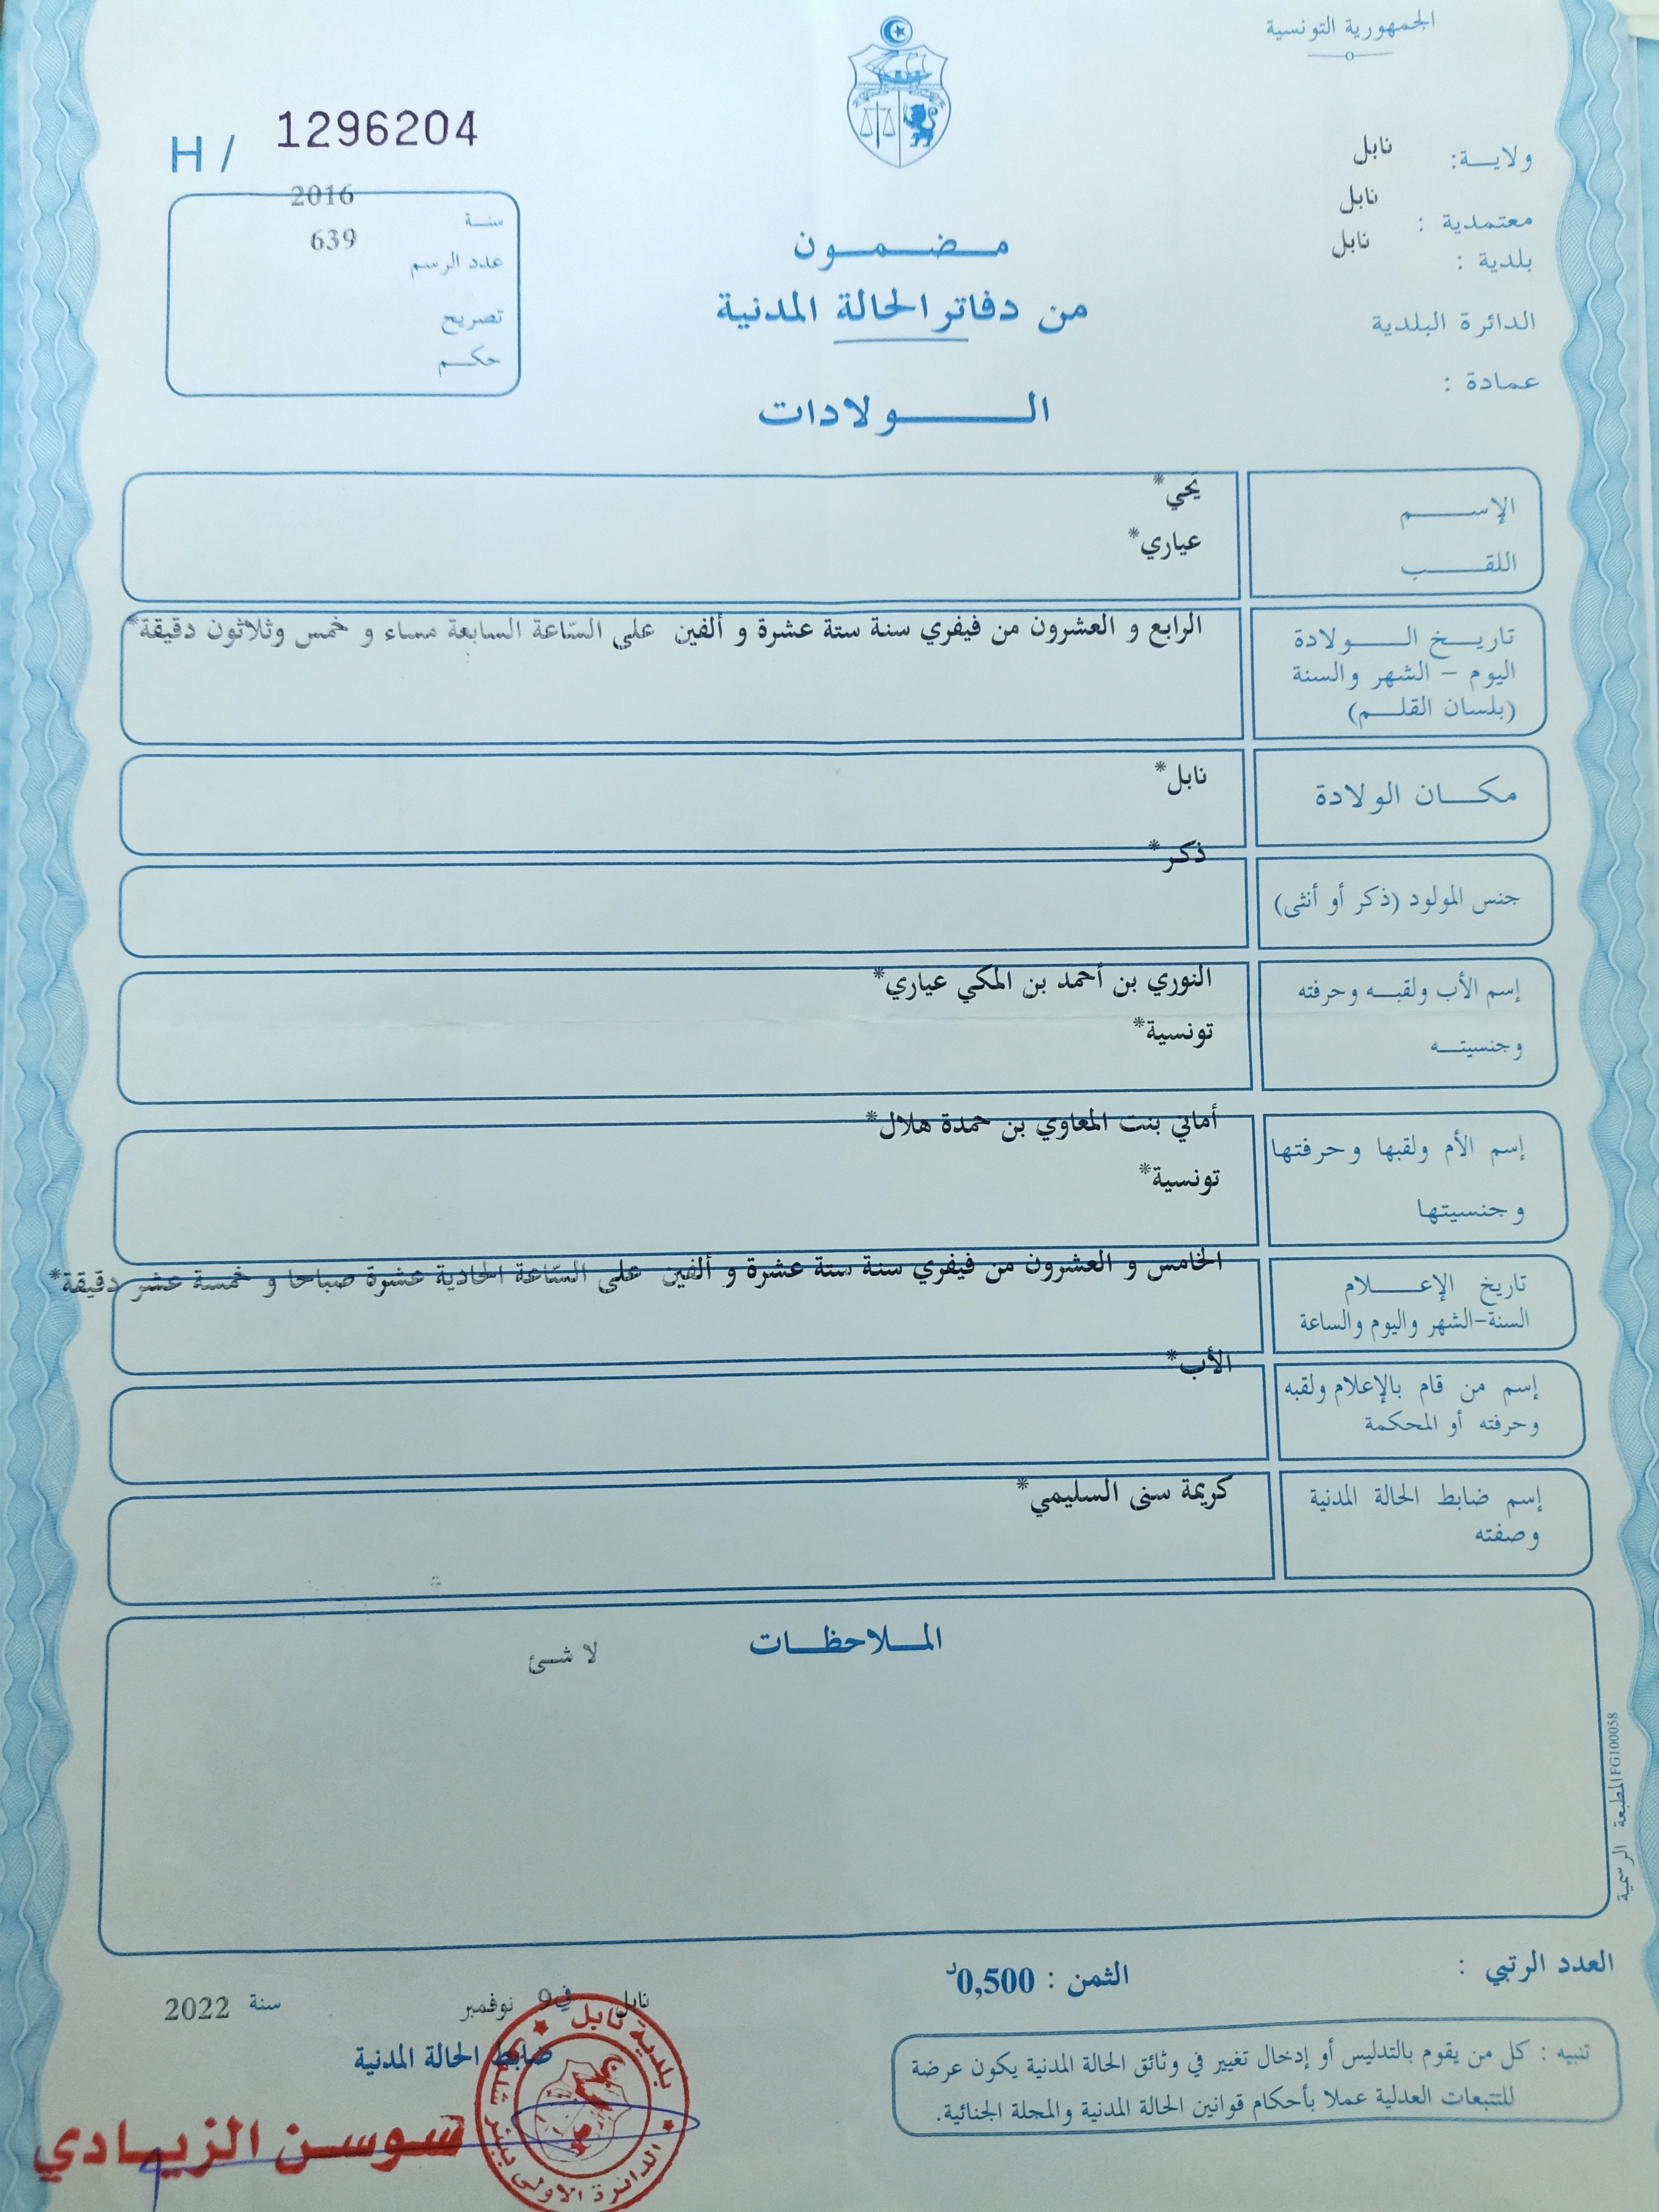 الجمهورية التونسية
ولايــة: نابل
معتمدية : نابل
بلدية : نابل
الدائرة البلدية
عمادة :
H / 1296204
سنــة 2016
عدد الرسم 639
تصريح
حكـــم
مـــضـــمـــون
من دفاتر الحالة المدنية
الـــــولادات
الإســــم يحي*
اللقــــب عياري*
تاريــخ الــــولادة
اليوم – الشهر والسنة
(بلسان القلــم)
الرابع و العشرون من فيفري سنة ستة عشرة و ألفين على السّاعة السابعة مساء و خمس وثلاثون دقيقة*
مكـــان الولادة نابل*
جنس المولود (ذكر أو أنثى) ذكر*
إسم الأب ولقبــه وحرفته النوري بن أحمد بن المكي عياري*
وجنسيتــه تونسية*
إسم الأم ولقبها وحرفتها أماني بنت المعاوي بن حمدة هلال*
وجنسيتها تونسية*
تاريخ الإعـــلام
السنة-الشهر واليوم والساعة
الخامس و العشرون من فيفري سنة ستة عشرة و ألفين على السّاعة الحادية عشرة صباحا و خمسة عشر دقيقة*
إسم من قام بالإعلام ولقبه
وحرفته أو المحكمة
الأب*
إسم ضابط الحالة المدنية
وصفته
كريمة سنى السليمي*
المــلاحظــات
لا شئ
المطبعة الرسمية FG100058
العدد الرتبي :
الثمن : 0,500د
نابل في 9 نوفمبر سنة 2022
ضابط الحالة المدنية
تنبيه : كل من يقوم بالتدليس أو إدخال تغيير في وثائق الحالة المدنية يكون عرضة
للتتبعات العدلية عملا بأحكام قوانين الحالة المدنية والمجلة الجنائية.
بلدية نابل
الدائرة الاولى
سوسن الزيادي